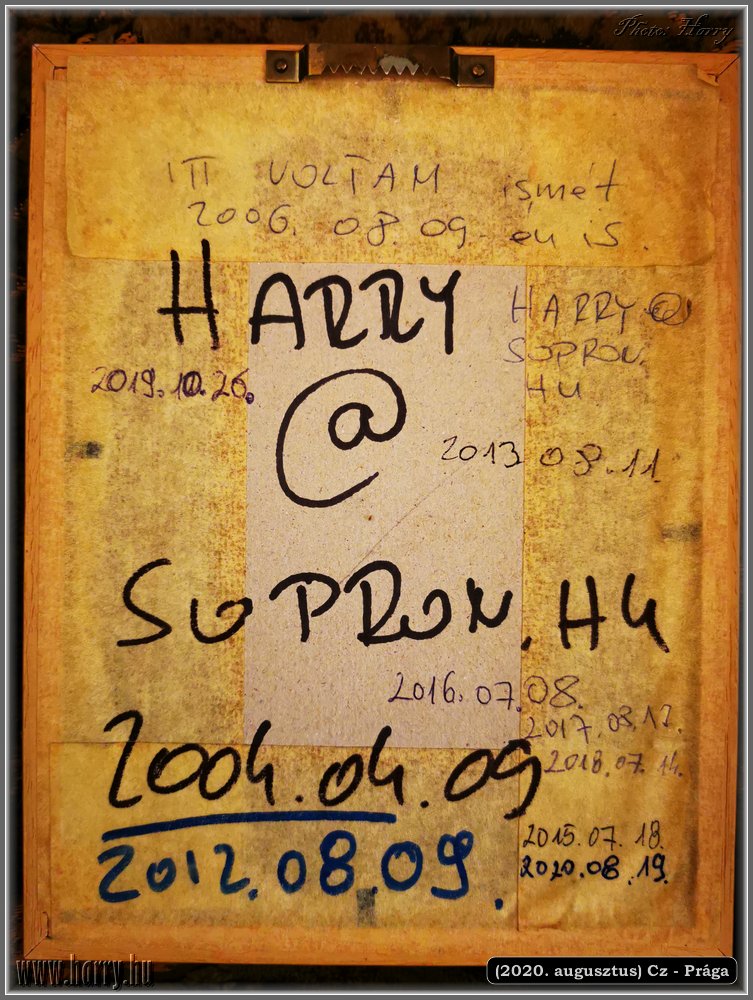 Photo: Harry
ITT VOLTAM ismét
2006. 08. 09. én is.
HARRY
HARRY@
SOPRON.
HU
2019.10.26.
@
2013 08.11.
SOPRON.HU
2016.07.08.
2017.08.17.
2018.07.14.
2004.04.09
2015.07.18.
2020.08.19.
2012.08.09.
www.harry.hu
(2020. augusztus) Cz - Prága